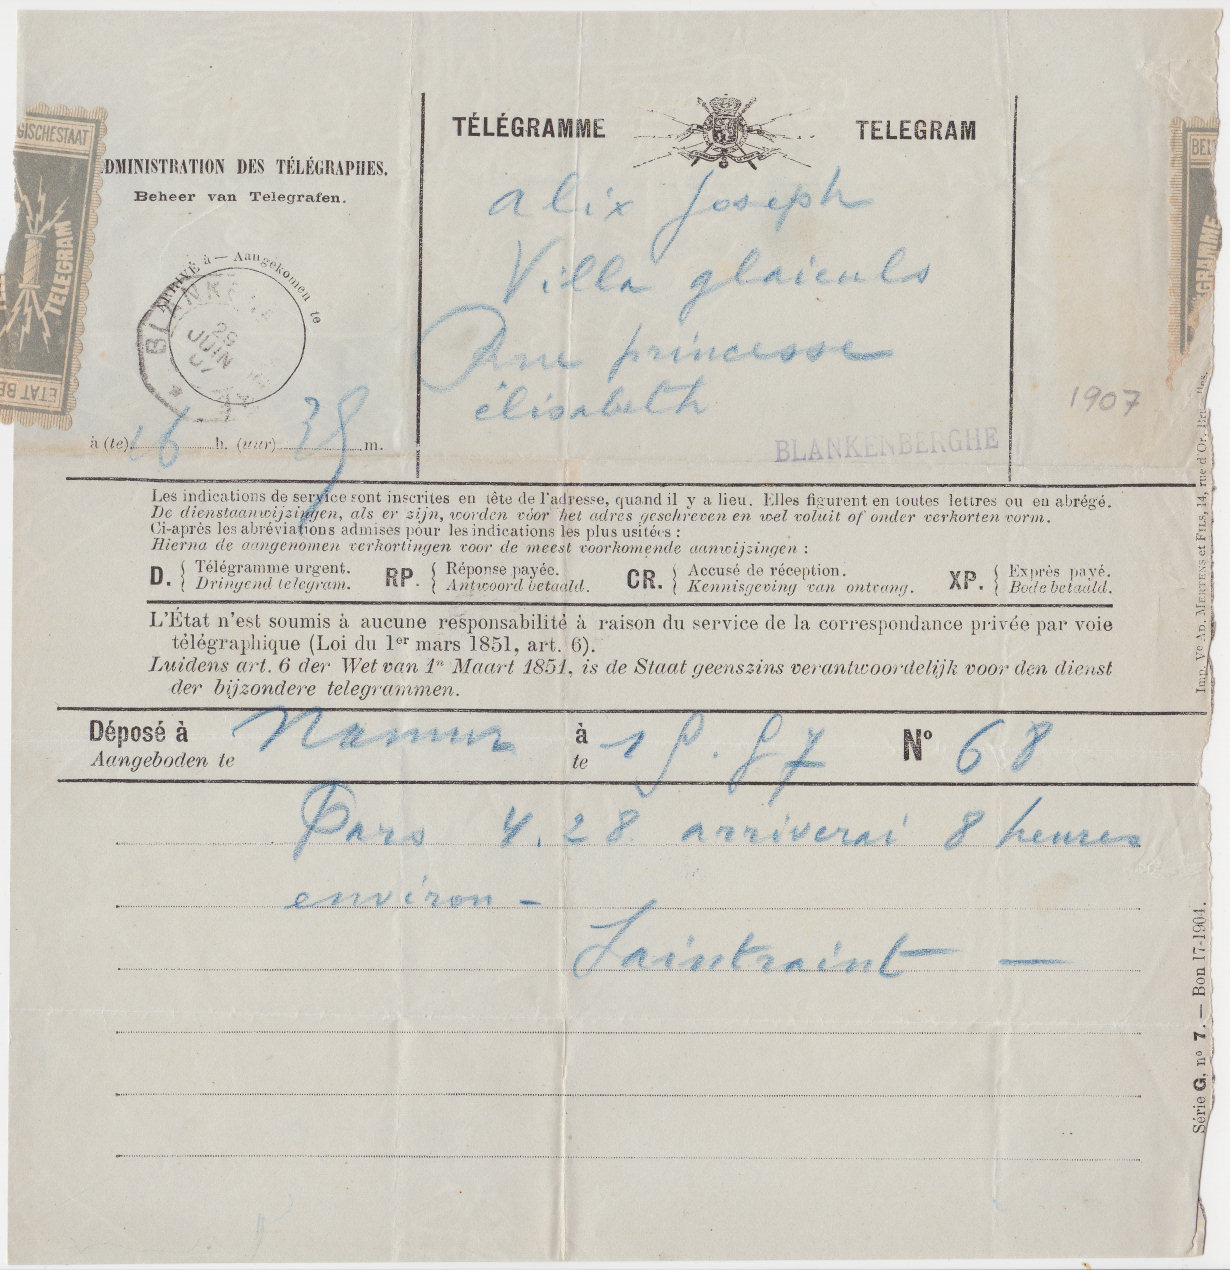 TÉLÉGRAMME
TELEGRAM
GISCHESTAAT
TELEGRAM
ETAT BE
DMINISTRATION DES TÉLÉGRAPHES.
Beheer van Telegrafen.
ARRIVÉ à — Aangekomen te
BLANKENBE
29
JUIN
07
à (te) 16 h. (uur) 38 m.
alix Joseph
Villa glaieuls
Rue princesse
élisabeth
BLANKENBERGHE
1907
BEL
GRAMME
Les indications de service sont inscrites en tête de l'adresse, quand il y a lieu. Elles figurent en toutes lettres ou en abrégé.
De dienstaanwijzingen, als er zijn, worden vóór het adres geschreven en wel voluit of onder verkorten vorm.
Ci-après les abréviations admises pour les indications les plus usitées :
Hierna de aangenomen verkortingen voor de meest voorkomende aanwijzingen :
D. { Télégramme urgent. Dringend telegram. RP. { Réponse payée. Antwoord betaald. CR. { Accusé de réception. Kennisgeving van ontvang. XP. { Exprès payé. Bode betaald.
L'État n'est soumis à aucune responsabilité à raison du service de la correspondance privée par voie
télégraphique (Loi du 1er mars 1851, art. 6).
Luidens art. 6 der Wet van 1n Maart 1851, is de Staat geenszins verantwoordelijk voor den dienst
der bijzondere telegrammen.
Déposé à Namur à 15.57 N° 68
Aangeboden te te
Pars 4.28 arriverai 8 heures
environ -
Saintraint —
Imp. Ve AD. MERTENS et FILS, 14, rue d'Or, Bruxelles.
Série G, n° 7. — Bon 17-1904.